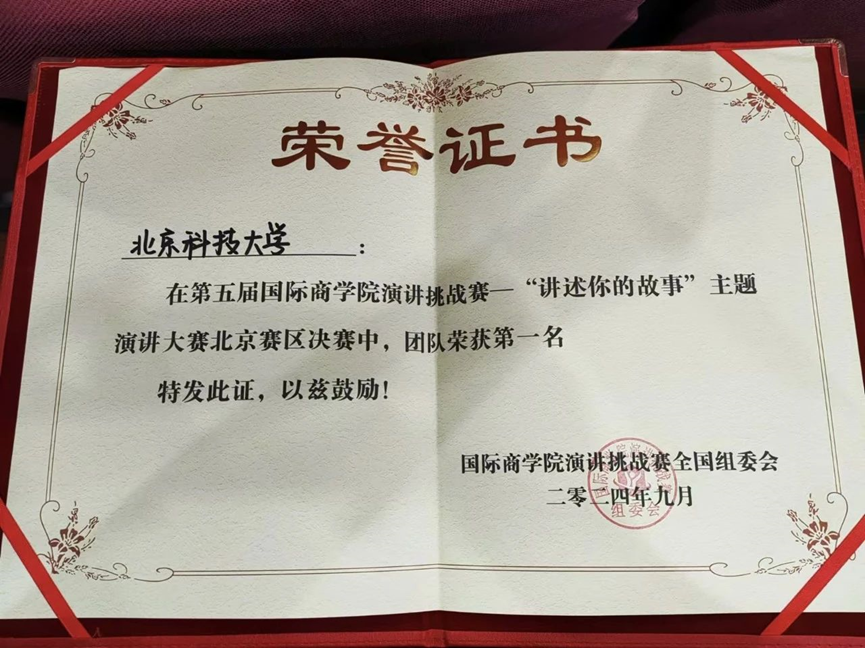 荣誉证书
北京科技大学：
在第五届国际商学院演讲挑战赛—“讲述你的故事”主题
演讲大赛北京赛区决赛中，团队荣获第一名
特发此证，以兹鼓励！
国际商学院演讲挑战赛全国组委会
二零二四年九月
组委会